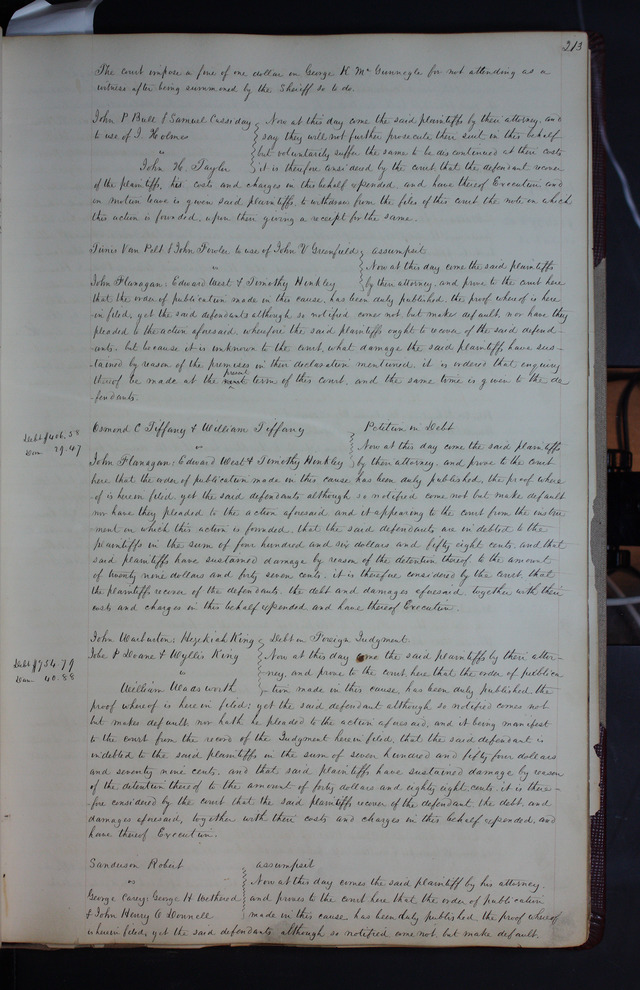 213
The court impose a fine of one dollar on George H. Mc Gunnegle for not attending as a
witness after being summoned by the Sheriff so to do.
John P Bull & Samuel Cassiday Now at this day come the said plaintiffs by their attorney, and
to use of J. Holmes say they will not further prosecute their suit in this behalf
vs but voluntarily suffer the same to be discontinued at their costs
John H. Taylor it is therefore considered by the court that the defendant recover
of the plaintiffs, his costs and charges in this behalf expended, and have thereof Execution and
on motion leave is given said plaintiffs to withdraw from the files of this court the note on which
this action is founded, upon their giving a receipt for the same.
Tunis Van Pelt & John Fowler to use of John V Greenfield assumpsit
vs Now at this day come the said plaintiffs
John Flanagan, Edward West & Timothy Henkley by their attorney, and prove to the court here
that the order of publication made in this cause, has been duly published, the proof where of is here
in filed, yet the said defendants although so notified come not, but make default nor have they
pleaded to the action aforesaid, wherefore the said plaintiffs ought to recover of the said defend
-ants. but because it is unknown to the court, what damage the said plaintiffs have sus-
tained by reason of the premises in their declaration mentioned, it is ordered that enquiry
thereof be made at the present term of this court, and the same time is given to the de
-fendants.
Osmond C Tiffany & William Tiffany Petition in Debt
Debt $406.58
Dam 29.47
vs Now at this day come the said plaintiffs
John Flanagan, Edward West & Timothy Henkley by their attorney, and prove to the court
here that the order of publication made in this cause has been duly published, the proof where
of is herein filed, yet the said defendants although so notified come not but make default
nor have they pleaded to the action aforesaid and it appearing to the court from the instru
ment on which this action is founded, that the said defendants are indebted to the
plaintiffs in the sum of four hundred and six dollars and fifty eight cents, and that
said plaintiffs have sustained damage by reason of the detention thereof to the amount
of twenty nine dollars and forty seven cents, it is therefore considered by the court that
the plaintiffs recover of the defendants, the debt and damages aforesaid, together with their
costs and charges in this behalf expended and have thereof Execution.
John Warburton, Hezekiah King Debt on Foreign Judgment.
Debt $754.79
Dam 40.88
Jobe F Doane & Wyllis King Now at this day come the said plaintiffs by their attor-
vs ney, and prove to the court here that the order of publica
William Wadsworth -tion made in this cause, has been duly published the
proof whereof is here in filed; yet the said defendant although so notified comes not
but makes default nor hath he pleaded to the action aforesaid, and it being manifest
to the court from the record of the Judgment herein filed, that the said defendant is
indebted to the said plaintiffs in the sum of seven hundred and fifty four dollars
and seventy nine cents. and that said plaintiffs have sustained damage by reason
of the detention thereof to the amount of forty dollars and eighty eight cents, it is there-
fore considered by the court that the said plaintiffs recover of the defendant, the debt, and
damages aforesaid, together with their costs and charges in this behalf expended, and
have thereof Execution.
Sanderson Robert assumpsit
vs Now at this day comes the said plaintiff by his attorney,
George Carey, George H Wetherod and proves to the court here that the order of publication
& John Henry O Donnell made in this cause, has been duly published the proof whereof
is herein filed, yet the said defendants although so notified come not, but make default.